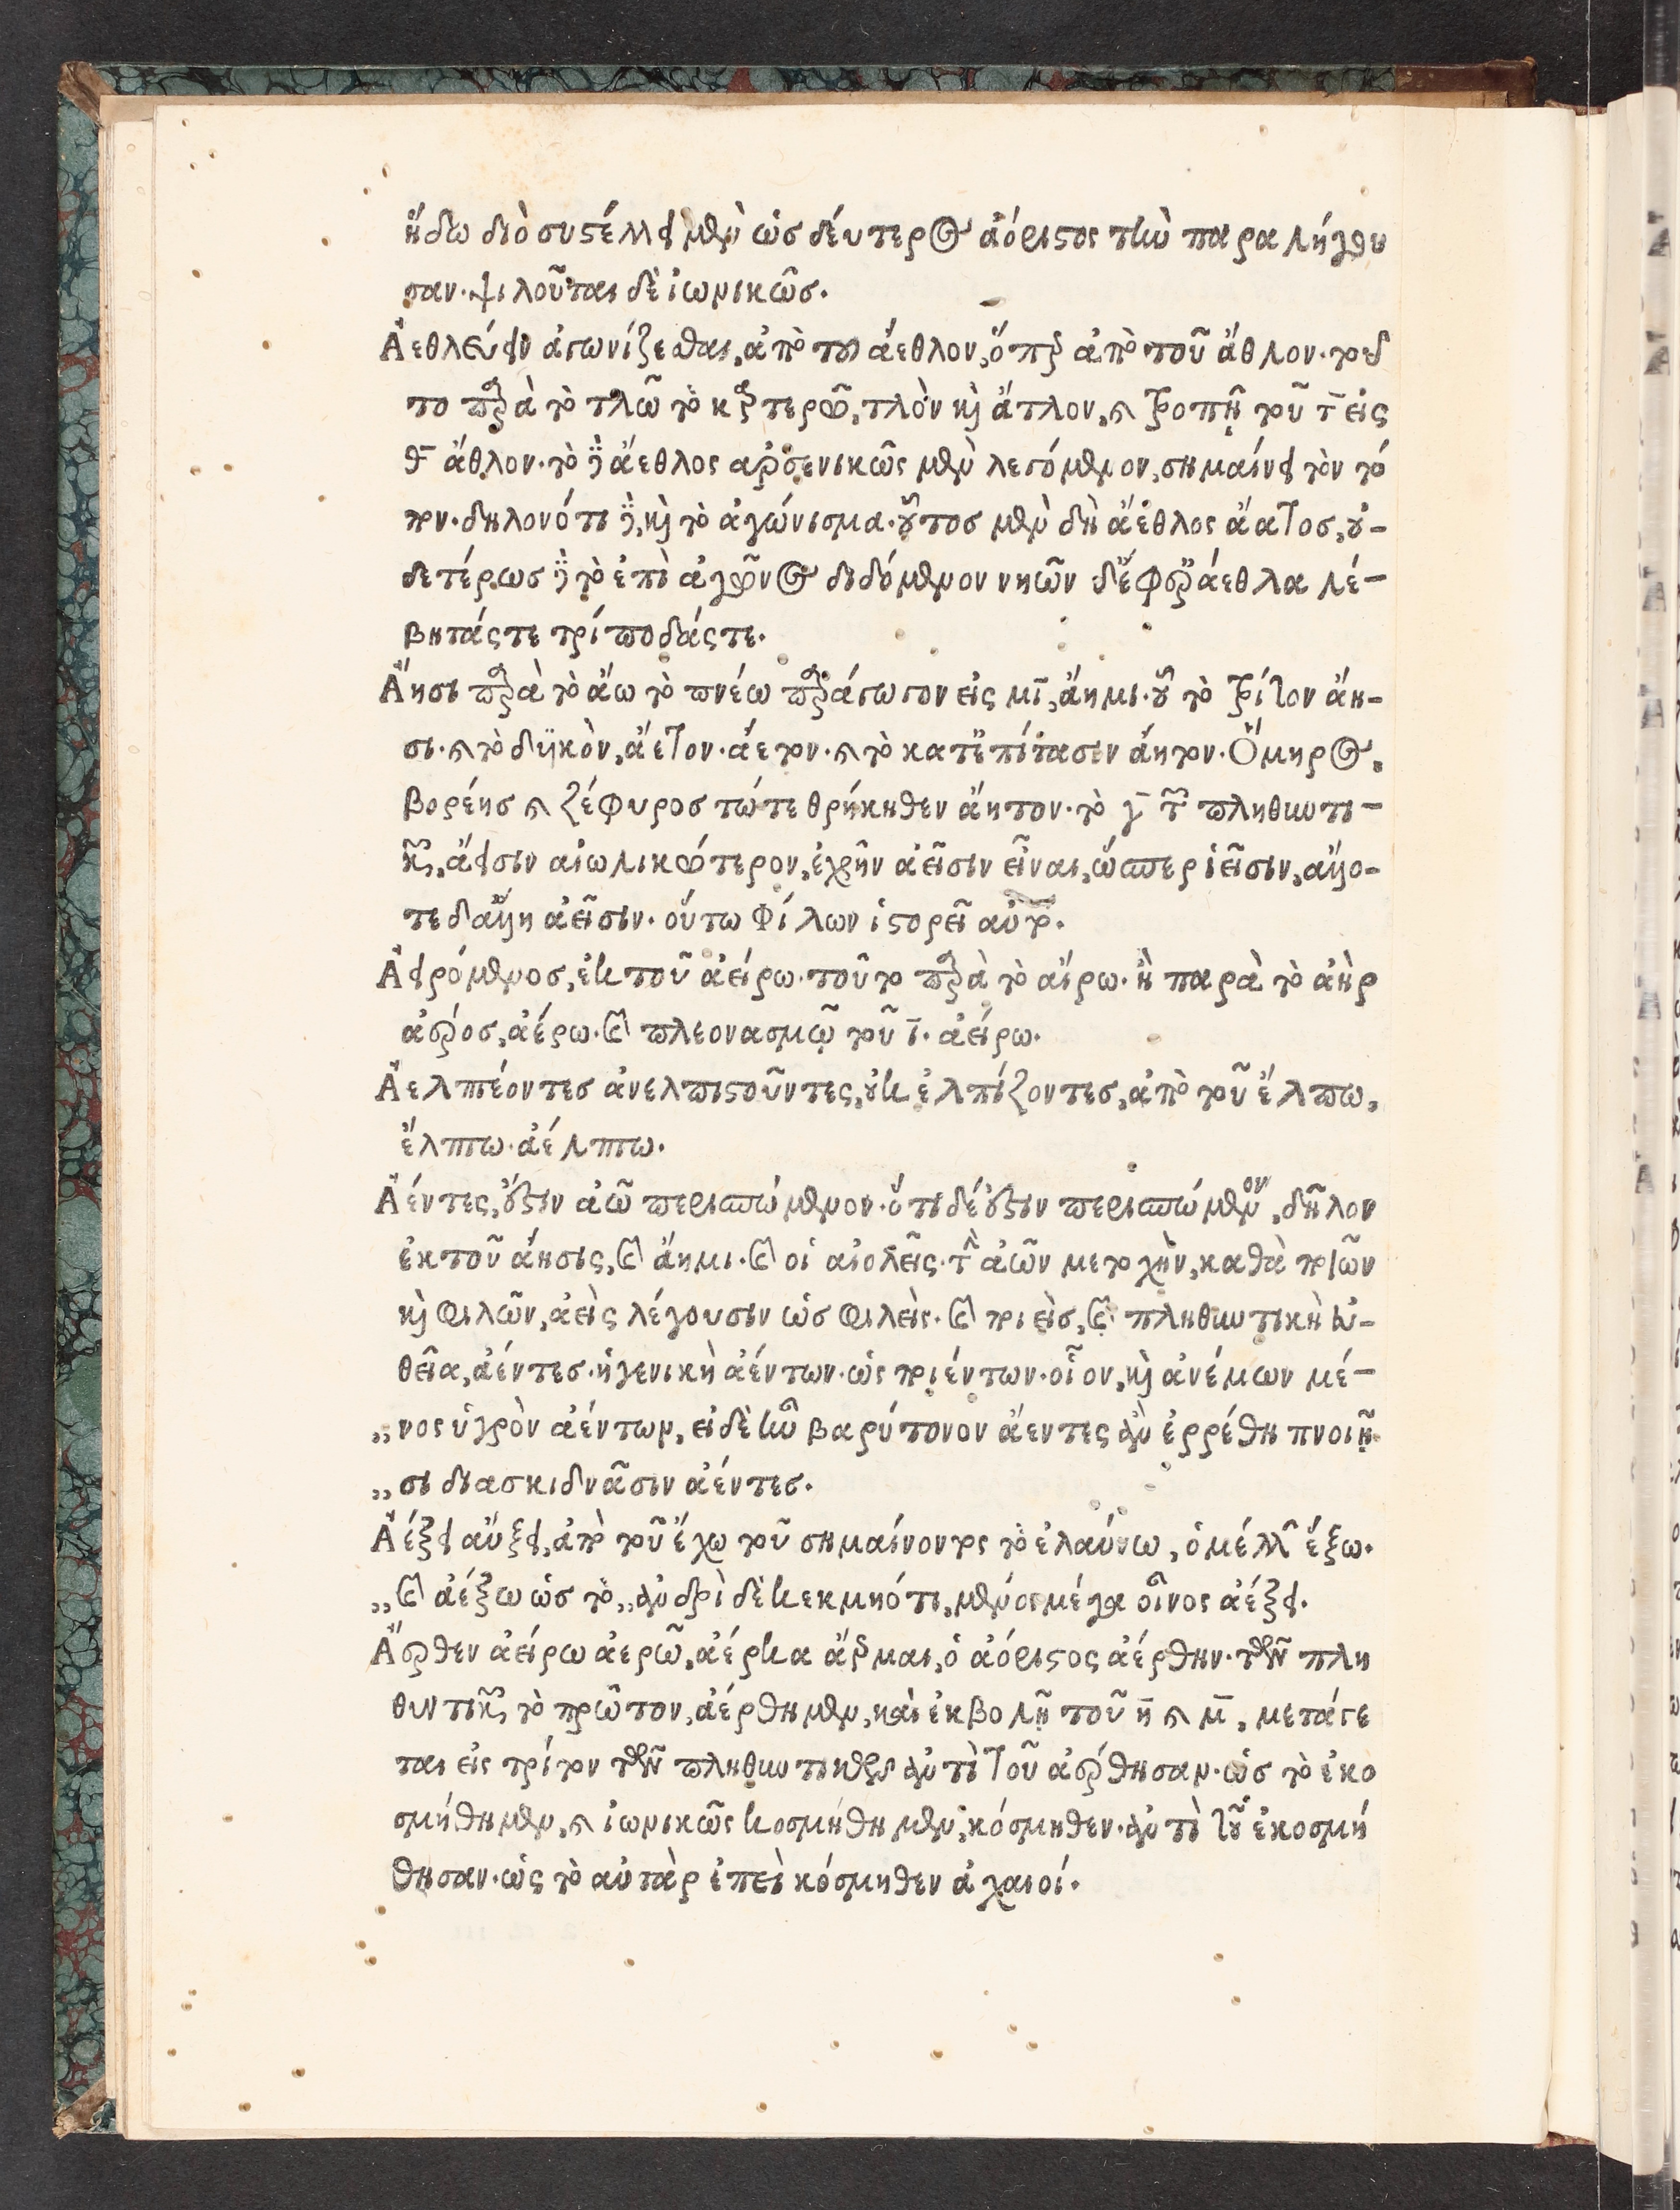 ήδω διὸ συστέλλει μὲν ὡσ δεύτερος ἀόριστος τὴν παραλήγου
σαν·ψιλοῦται δὲ ἰωνικῶσ.
Ἀεθλεύειν ἀγωνίζεσθαι, ἀπὸ τοῦ άεθλον, ὅπερ ἀπὸ τοῦ ἄθλον·τοῦ
το παρὰ τὸ τλῶ τὸ καρτερῶ, τλὸν καὶ ἄτλον, καὶ τροπῇ τοῦ τ̄ εἰς
θ̄ ἄθλον·τὸ δὲ ἄεθλος αρσενικῶς μὲν λεγόμενον, σημαίνει τὸν τό
πον·δηλονότι δὲ, καὶ τὸ ἀγώνισμα·οὗτοσ μὲν δὴ ἄεθλος ἀατος, οὐ-
δετέρωσ δὲ τὸ ἐπὶ ἀγῶνος διδόμενον νηῶν δ' ἔφερ' ἄεθλα λέ-
βητάς τε τρίποδάς τε.
Ἄησι παρὰ τὸ ἄω τὸ πνέω παράγωγον εἰς μῑ, ἄημι·οὗ τὸ τρίτον ἄη-
σι·καὶ τὸ δυϊκὸν, ἄετον·άετον·καὶ τὸ κατ' ἐπίτασιν άητον·Ὅμηρος,
βορέησ καὶ ζέφυροσ τώτε θρήκηθεν ἄητον·τὸ γ̄ τῶν πληθυντι-
κῶν, ἄεισιν αἰωλικώτερον, ἐχρῆν ἀεῖσιν εἶναι, ὥσπερ ἱεῖσιν, ἄλλο-
τε δ' ἄλλη ἀεῖσιν·ούτω Φίλων ἱστορεῖ αὐτό.
Ἀειρόμενοσ, ἐκ τοῦ ἀείρω·τοῦτο παρὰ τὸ αἴρω·ἢ παρὰ τὸ ἀὴρ
ἀέροσ, ἀέρω·καὶ πλεονασμῷ τοῦ ῑ·ἀείρω.
Ἀελπτέοντεσ ἀνελπιστοῦντες, οὐκ ἐλπίζοντεσ, ἀπὸ τοῦ ἔλπω,
ἔλπτω·ἀέλπτω.
Ἀέντες, οὖσιν ἀῶ περισπώμενον·ὅτι δέ οὖσιν περισπώμενον, δῆλον
ἐκ τοῦ άησις, καὶ ἄημι·καὶ οἱ αἰολεῖς·τὴν ἀῶν μετοχὴν, καθὰ ποιῶν
καὶ φιλῶν, ἀεὶς λέγουσιν ὡσ φιλεὶς·καὶ ποιεὶσ, καὶ πληθυντικὴ εὐ-
θεῖα, ἀέντεσ·ἡ γενικὴ ἀέντων·ὡς ποιέντων·οἷον, καὶ ἀνέμων μέ-
„νος ὑγρὸν ἀέντων, εἰ δὲ ἦν βαρύτονον ἄεντες ἂν ἐρρέθη πνοιῇ
„σι διασκιδνᾶσιν ἀέντεσ.
Ἀέξει αὔξει, ἀπὸ τοῦ ἔχω τοῦ σημαίνοντος τὸ ἐλαύνω, ὁ μέλλων έξω.
„καὶ ἀέξω ὡσ τὸ „ἀνδρὶ δὲ κεκμηότι, μένος μέγα οἶνος ἀέξει.
Ἄερθεν ἀείρω ἀερῶ, ἀέρκα ἄερμαι, ὁ ἀόριστος ἀέρθην·τῶν πλη
θυντικῶν τὸ πρῶτον, ἀέρθημεν, καὶ ἐκβολῇ τοῦ η̄ καὶ μ̄, μετάγε
ται εἰς τρίτον τῶν πληθυντικῶν ἀντὶ τοῦ ἀέρθησαν·ὡσ τὸ ἐκο
σμήθημεν, καὶ ἰωνικῶς κοσμήθημεν, κόσμηθεν·ἀντὶ τοῦ ἐκοσμή
θησαν·ὡς τὸ αὐτὰρ ἐπεὶ κόσμηθεν ἀχαιοί.